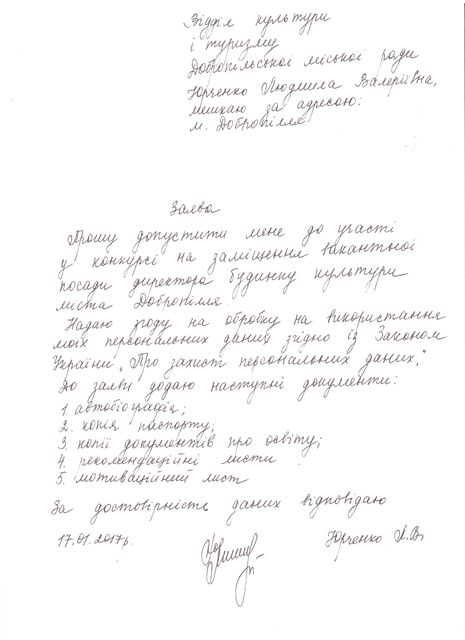 Відділ культури
і туризму
Добропільської міської ради
Юрченко Людмила Валеріївна,
мешкаю за адресою:
м. Добропілля
Заява
Прошу допустити мене до участі
у конкурсі на заміщення вакантної
посади директора будинку культури
міста Добропілля.
Надаю згоду на обробку на використання
моїх персональних даних згідно із Законом
України „Про захист персональних даних."
До заяви додаю наступні документи:
1. автобіографія;
2. копія паспорту;
3. копії документів про освіту;
4. рекомендаційні листи
5. мотиваційний лист
За достовірність даних відповідаю
17.01.2017р. Юрченко Л.В.